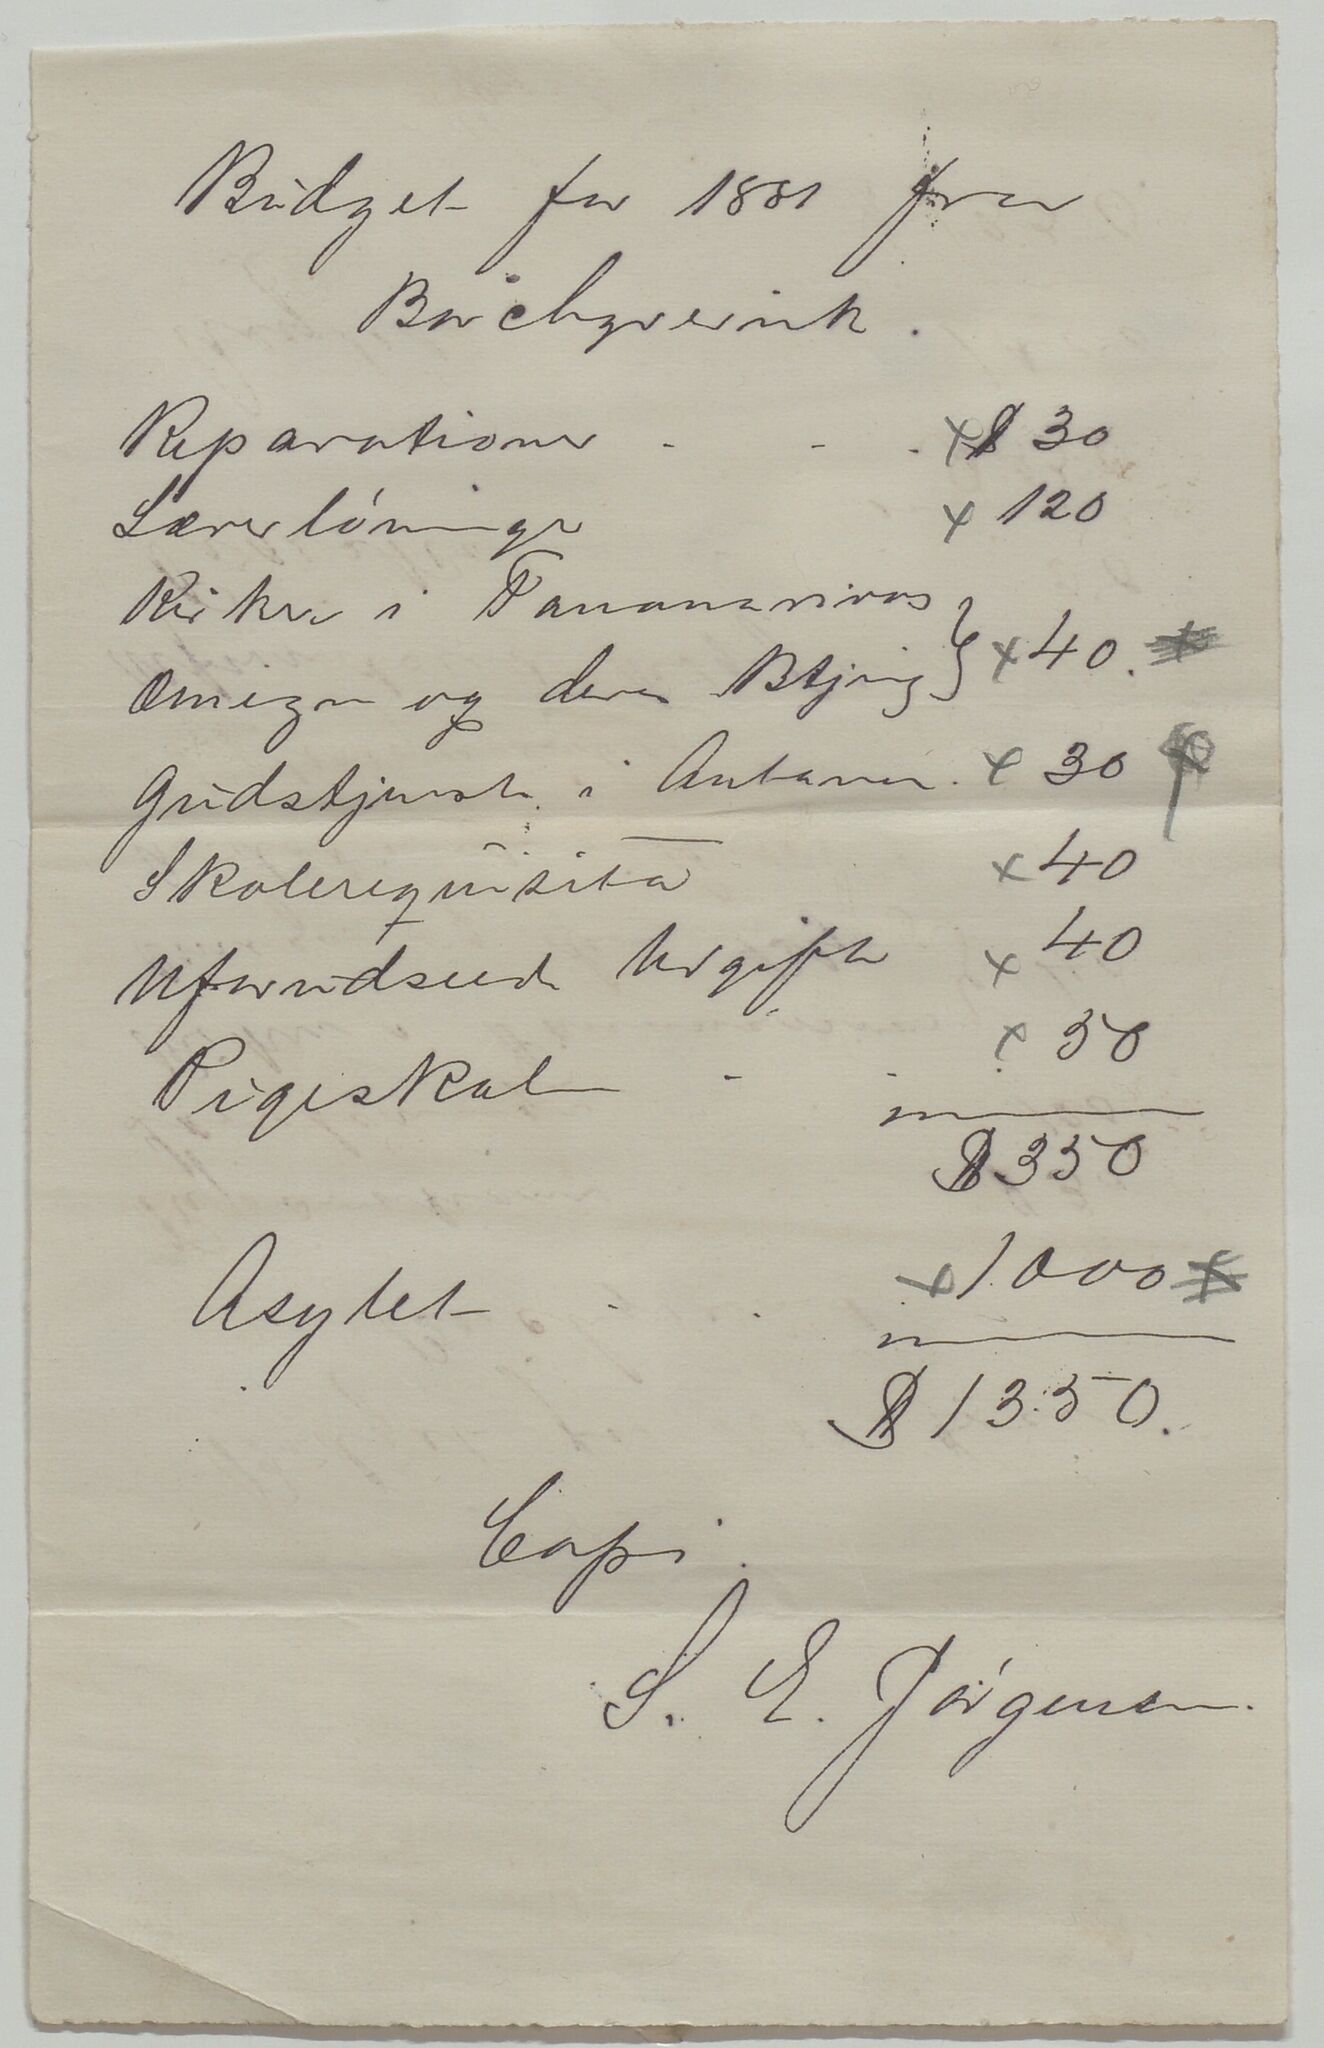 Budget for 1881 fra
Borchgrevink.
Reparationer - - . x $ 30
Lærerlóninger x 120
Kirker i Tananarivos
Omegn og deres Btjning } x 40.
Gudstjeneste i Antanan. x 30
Skolerequisita x 40
Uforudseede Udgifter x 40
Pigeskole - . x 50
$ 350
Asylet - . x 1000
$ 1350.
Copi.
S. E. Jórgensen.